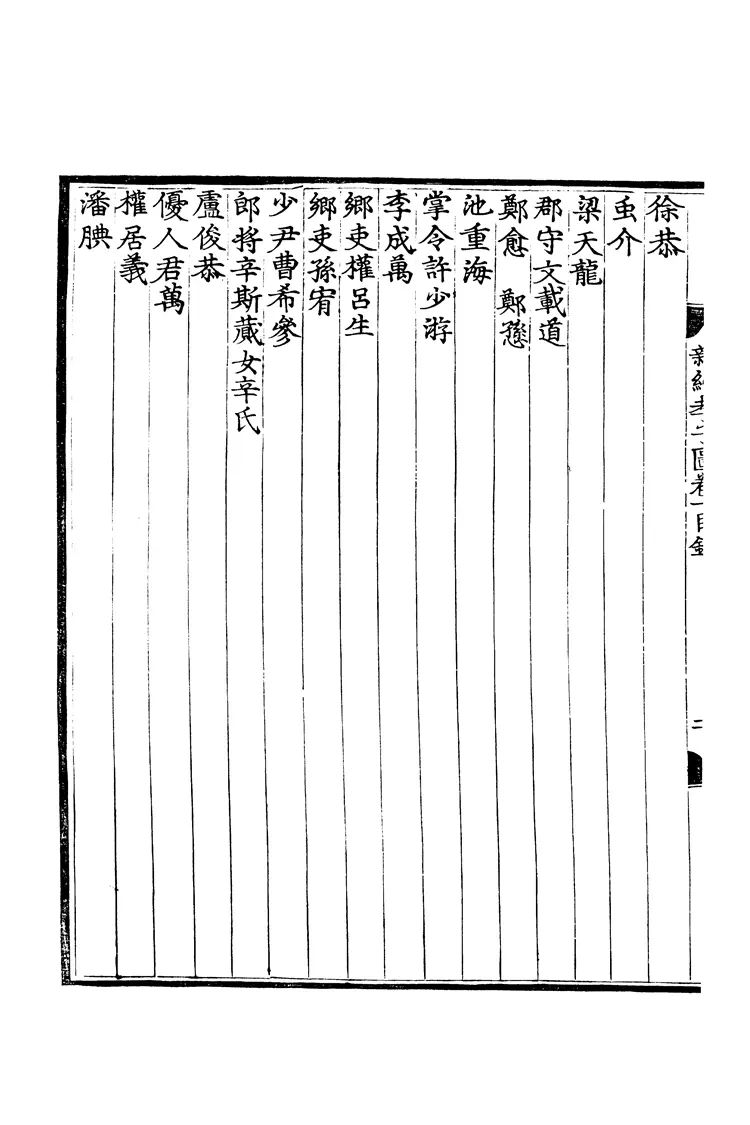 徐恭
虫介
梁天龍
郡守文載道
鄭愈 鄭愻
池重海
掌令許少游
李成萬
鄉吏權呂生
鄉吏孫宥
少尹曹希參
郎將辛斯蕆女辛氏
盧俊恭
優人君萬
權居義
潘腆
新編孝子圖卷一目錄
二